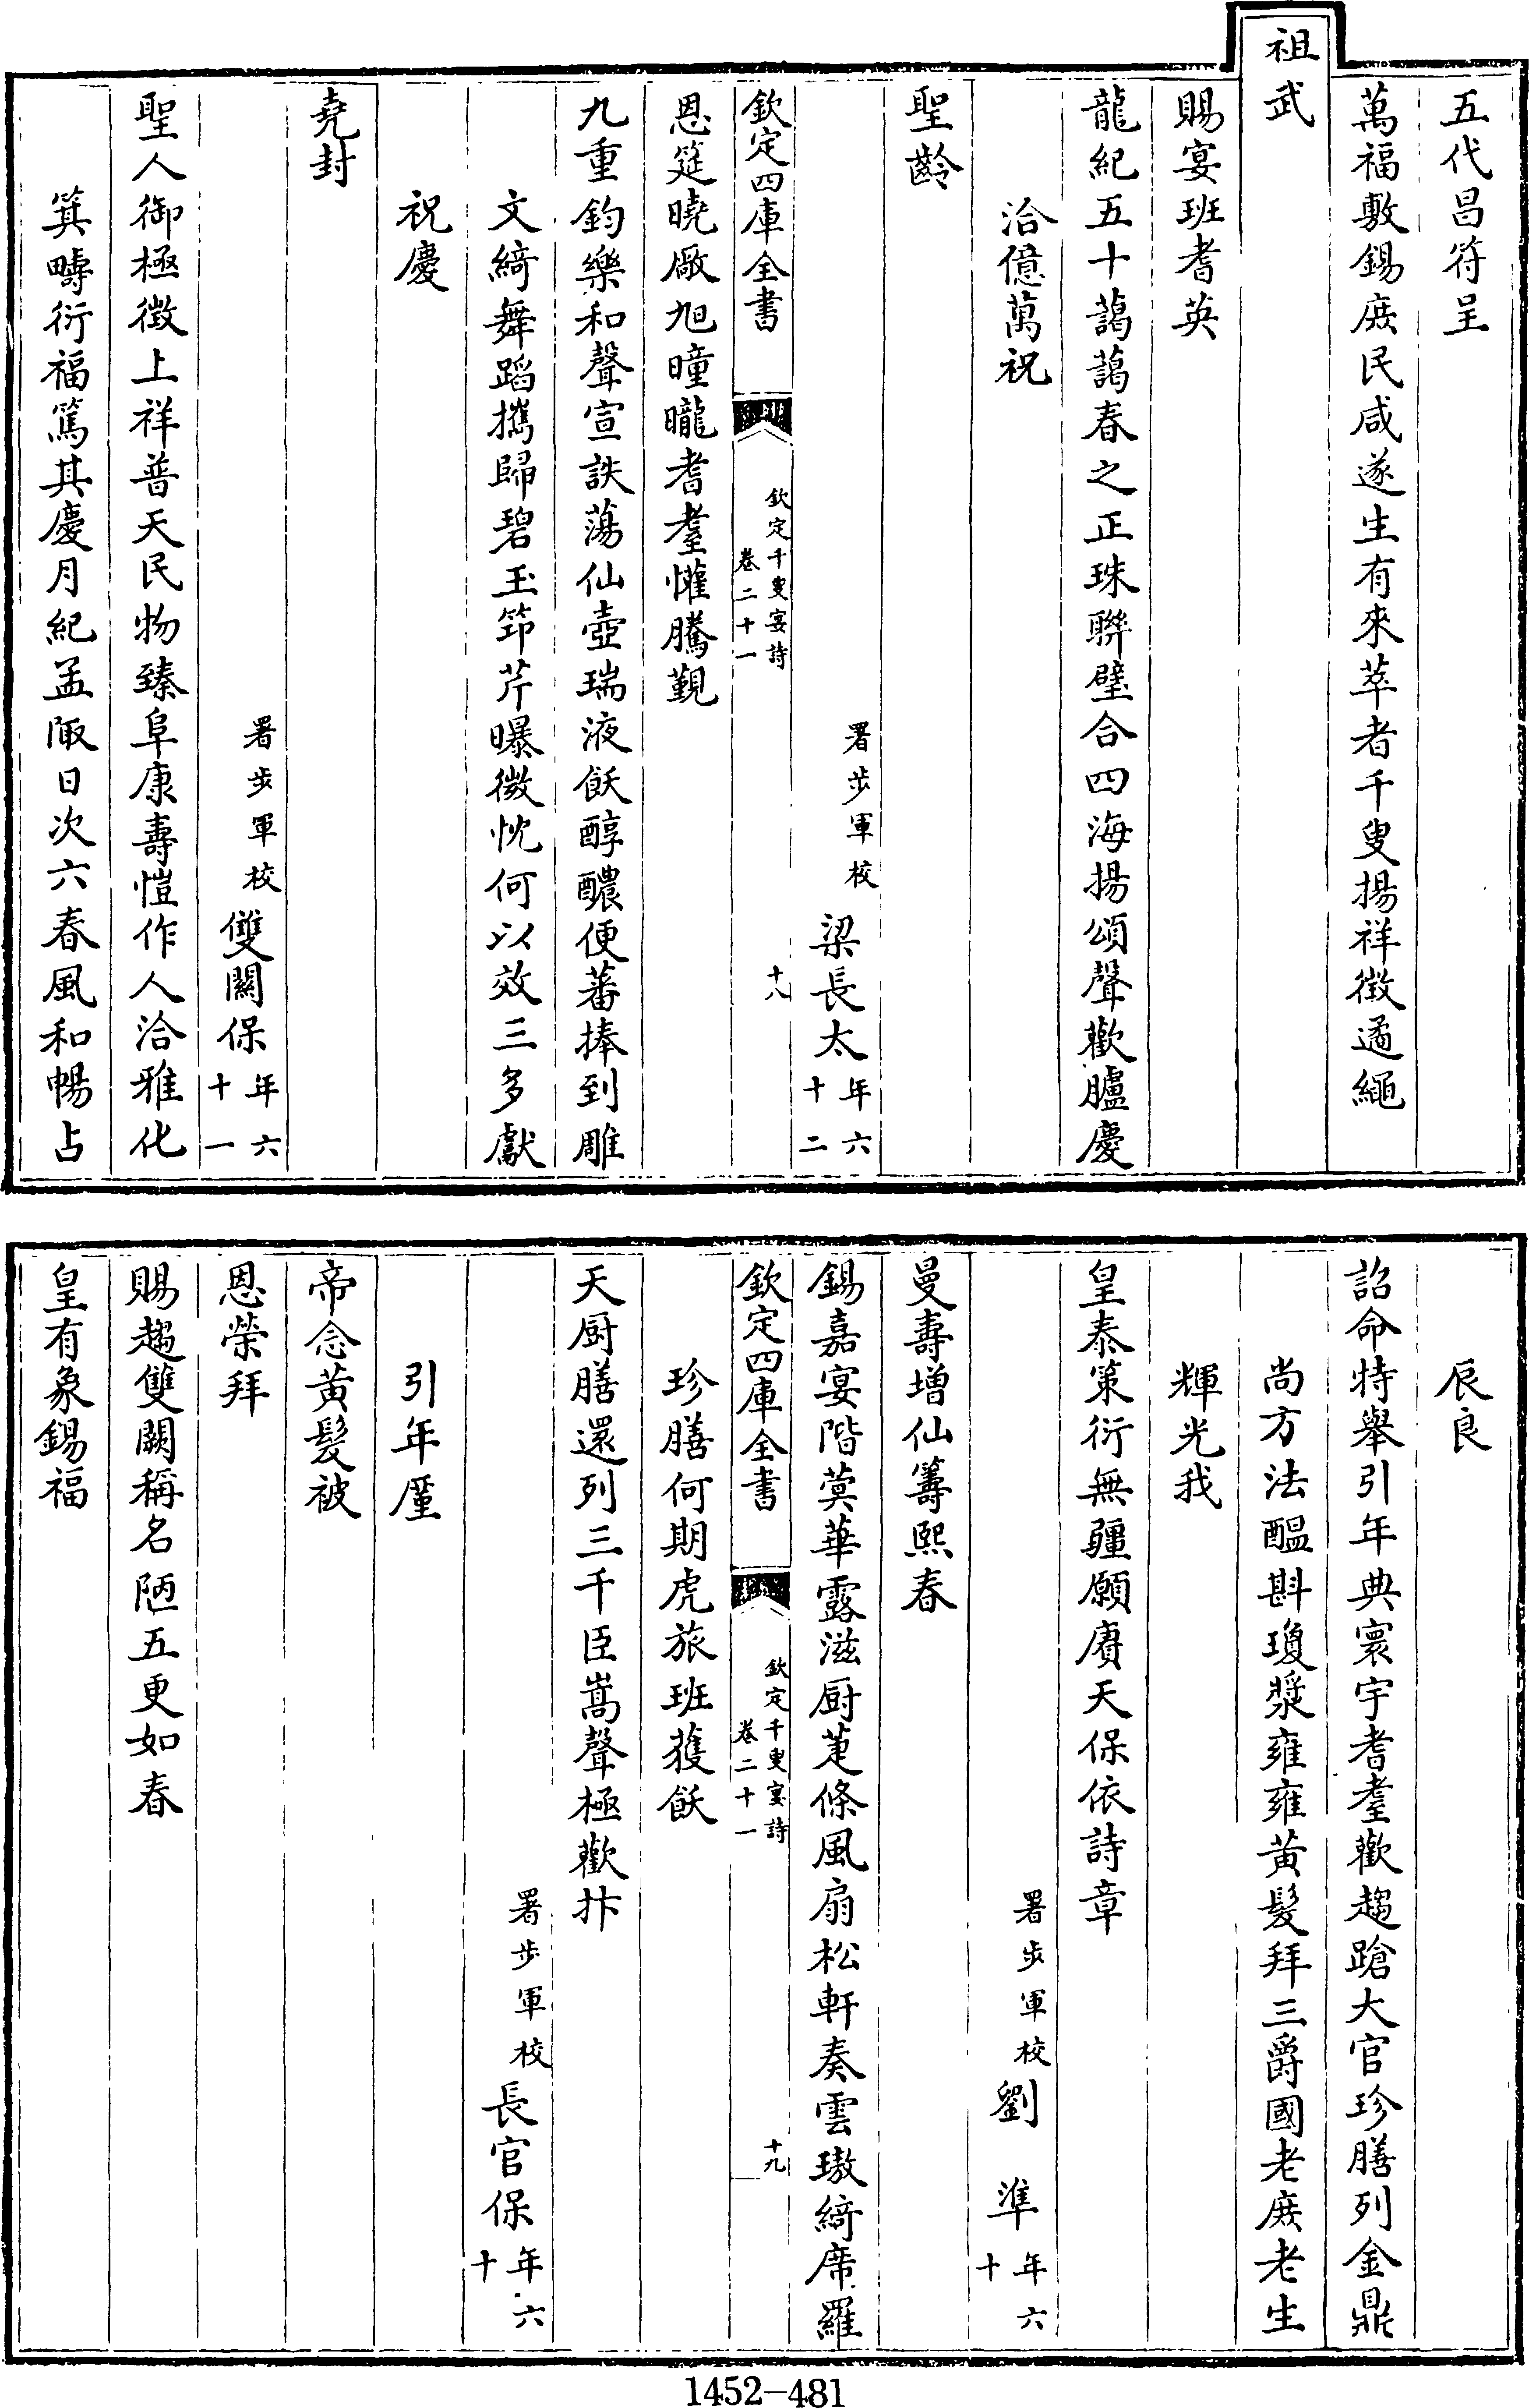 五代昌符呈
萬福敷錫庻民咸遂生有來萃者千叟揚祥徴遹繩
祖武
賜宴班耆英
龍紀五十藹藹春之正珠聯璧合四海揚頌聲歡臚慶
洽億萬祝
聖齡
署步軍校梁長太年六十二
欽定四庫全書
欽定千叟宴詩
卷二十一
十八
恩筵曉厰旭曈曨耆耋懽騰覲
九重鈞樂和聲宣詄蕩仙壺瑞液飫醇醲便蕃捧到雕
文綺舞蹈攜歸碧玉笻芹曝微忱何以效三多獻
祝慶
堯封
署步軍校雙關保年六十一
聖人御極徴上祥普天民物臻阜康壽愷作人洽雅化
箕疇衍福篤其慶月紀孟陬日次六春風和暢占
辰良
詔命特舉引年典寰宇耆耋歡趨蹌大官珍膳列金鼎
尚方法醖斟瓊漿雍雍黄髮拜三爵國老庻老生
輝光我
皇泰策衍無疆願賡天保依詩章
署步軍校劉 準年六十
曼壽增仙籌熙春
錫嘉宴階蓂華露滋厨萐條風扇松軒奏雲璈綺席羅
欽定四庫全書
欽定千叟宴詩
卷二十一
十九
珍膳何期虎旅班獲飫
天厨膳還列三千臣嵩聲極歡抃
署步軍校長官保年六十
引年厪
帝念黄髮被
恩榮拜
賜趨雙闕稱名陋五更如春
皇有象錫福
1452-481